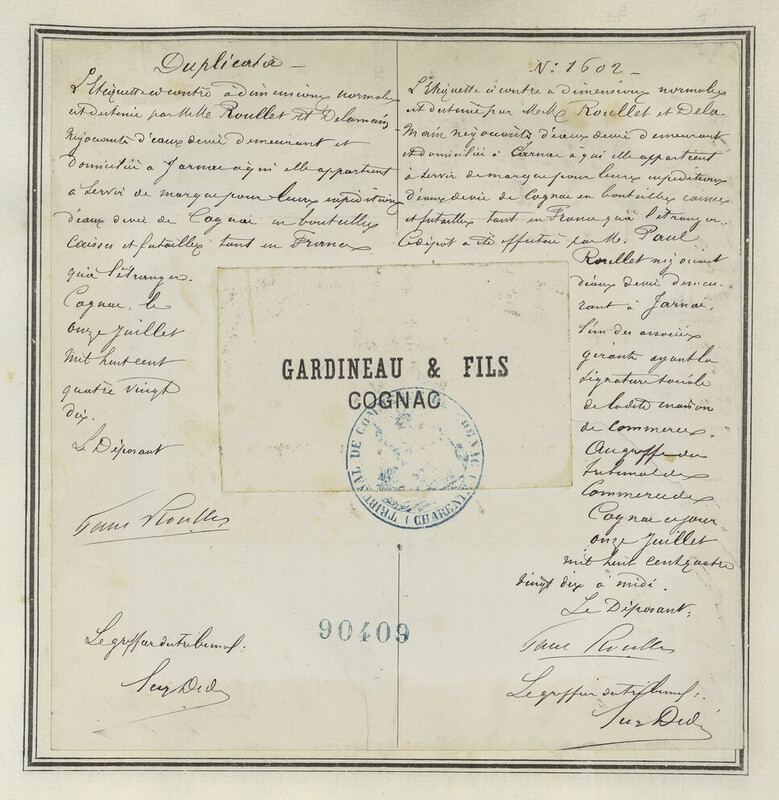 Duplicata
L'Etiquette ci contre à dimensions normales
est destinée par M.M. Roullet et Delamain
Négociants d'eaux de vie demeurant et
domiciliés à Jarnac à qui elle appartient
à servir de marque pour leurs expéditions
d'eaux de vie de Cognac en bouteilles
caisses et futailles tant en France
qu'à l'étranger.
Cognac, le
onze Juillet
mil huit cent
quatre vingt
dix.
Le Déposant
Paul Roullet
Le greffier du tribunal:
N: 1602
L'Etiquette ci contre à dimensions normales
est destinée par M.M. Roullet et Dela-
main négociants d'eaux de vie demeurant
et domiciliés à Jarnac à qui elle appartient
à servir de marque pour leurs expéditions
d'eaux de vie de Cognac en bouteilles caisses
et futailles tant en France qu'à l'étranger.
Ce dépôt a été effectué par M. Paul
Roullet négociant
d'eaux de vie demeu-
rant à Jarnac,
l'un des associés
gérants ayant la
signature sociale
de la dite maison
de commerce.
Au greffe du
tribunal de
Commerce de
Cognac ce jour
onze Juillet
mil huit cent quatre
vingt dix à midi.
Le Déposant:
Paul Roullet
Le greffier du tribunal:
GARDINEAU & FILS
COGNAC
TRIBUNAL DE COMMERCE COGNAC (CHARENTE)
90409